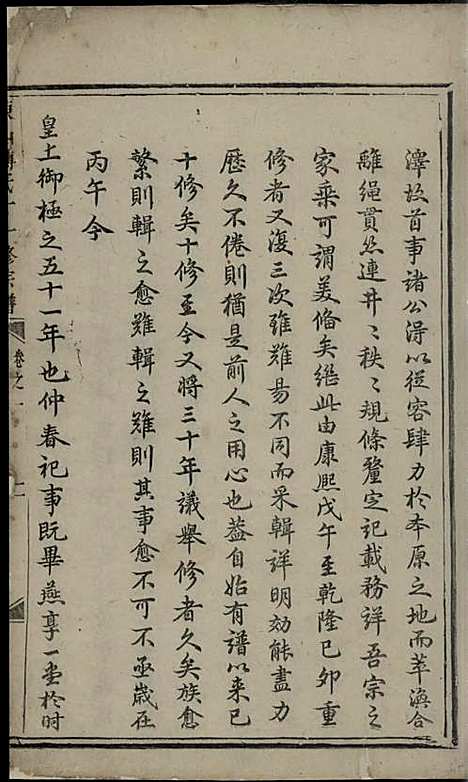 澤故首事諸公淂以從容肆力於本原之地而萃渙合
離繩貫然連井〻秩〻規條釐定記載務詳吾宗之
家乘可謂美俻矣繼此由康熙戊午至乾隆已卯重
修者又復三次雖難易不同而采輯詳明効能盡力
歷久不倦則猶是前人之用心也葢自始有譜以来已
十修矣十修至今又將三十年議舉修者久矣族愈
繁則輯之愈難輯之難則其事愈不可不亟歲在
丙午今
皇上御極之五十一年也仲春祀事既畢燕享一堂於时
十一修宗譜
卷之一